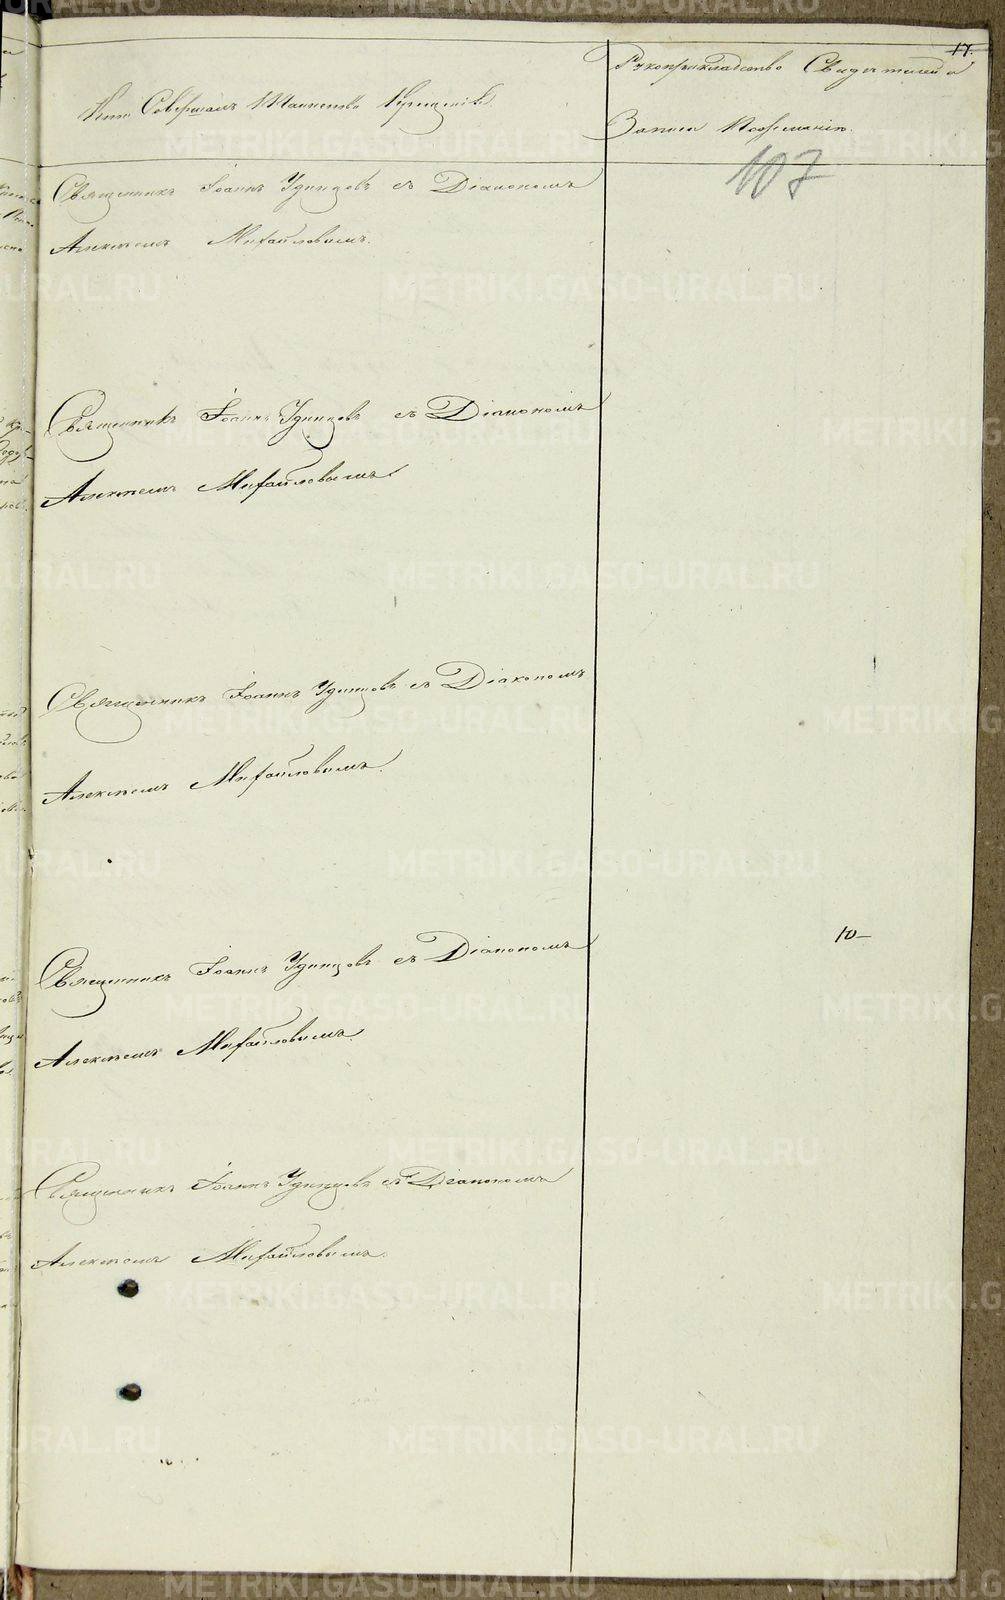 17.
Кто Совершалъ Таинство Крещенiя
Рукоприкладство Свидетелей
Записи По желанію.
107
Священникъ Іоаннъ Удинцовъ съ Діакономъ
Алексѣемъ Михайловымъ.
Священникъ Іоаннъ Удинцовъ съ Діакономъ
Алексѣемъ Михайловымъ.
Священникъ Іоаннъ Удинцовъ съ Діакономъ
Алексѣемъ Михайловымъ.
10-
Священникъ Іоаннъ Удинцовъ съ Діакономъ
Алексѣемъ Михайловымъ.
Священникъ Іоаннъ Удинцовъ съ Діакономъ
Алексѣемъ Михайловымъ.
METRIKI.GASO-URAL.RU